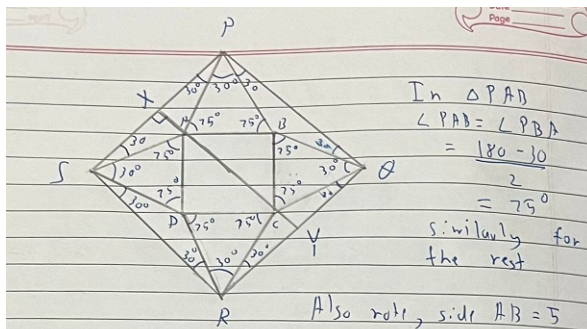 Date
Page
P
30° 30° 30
X
A 75° 75° B
30 75° 75° 30
S 30° 30° Q
30 75° 75° 30
D 75° 75° C
Y
30° 30° 30°
R
In △PAB
∠PAB = ∠PBA
= 180 - 30
2
= 75°
similarly for
the rest
Also note, side AB = 5